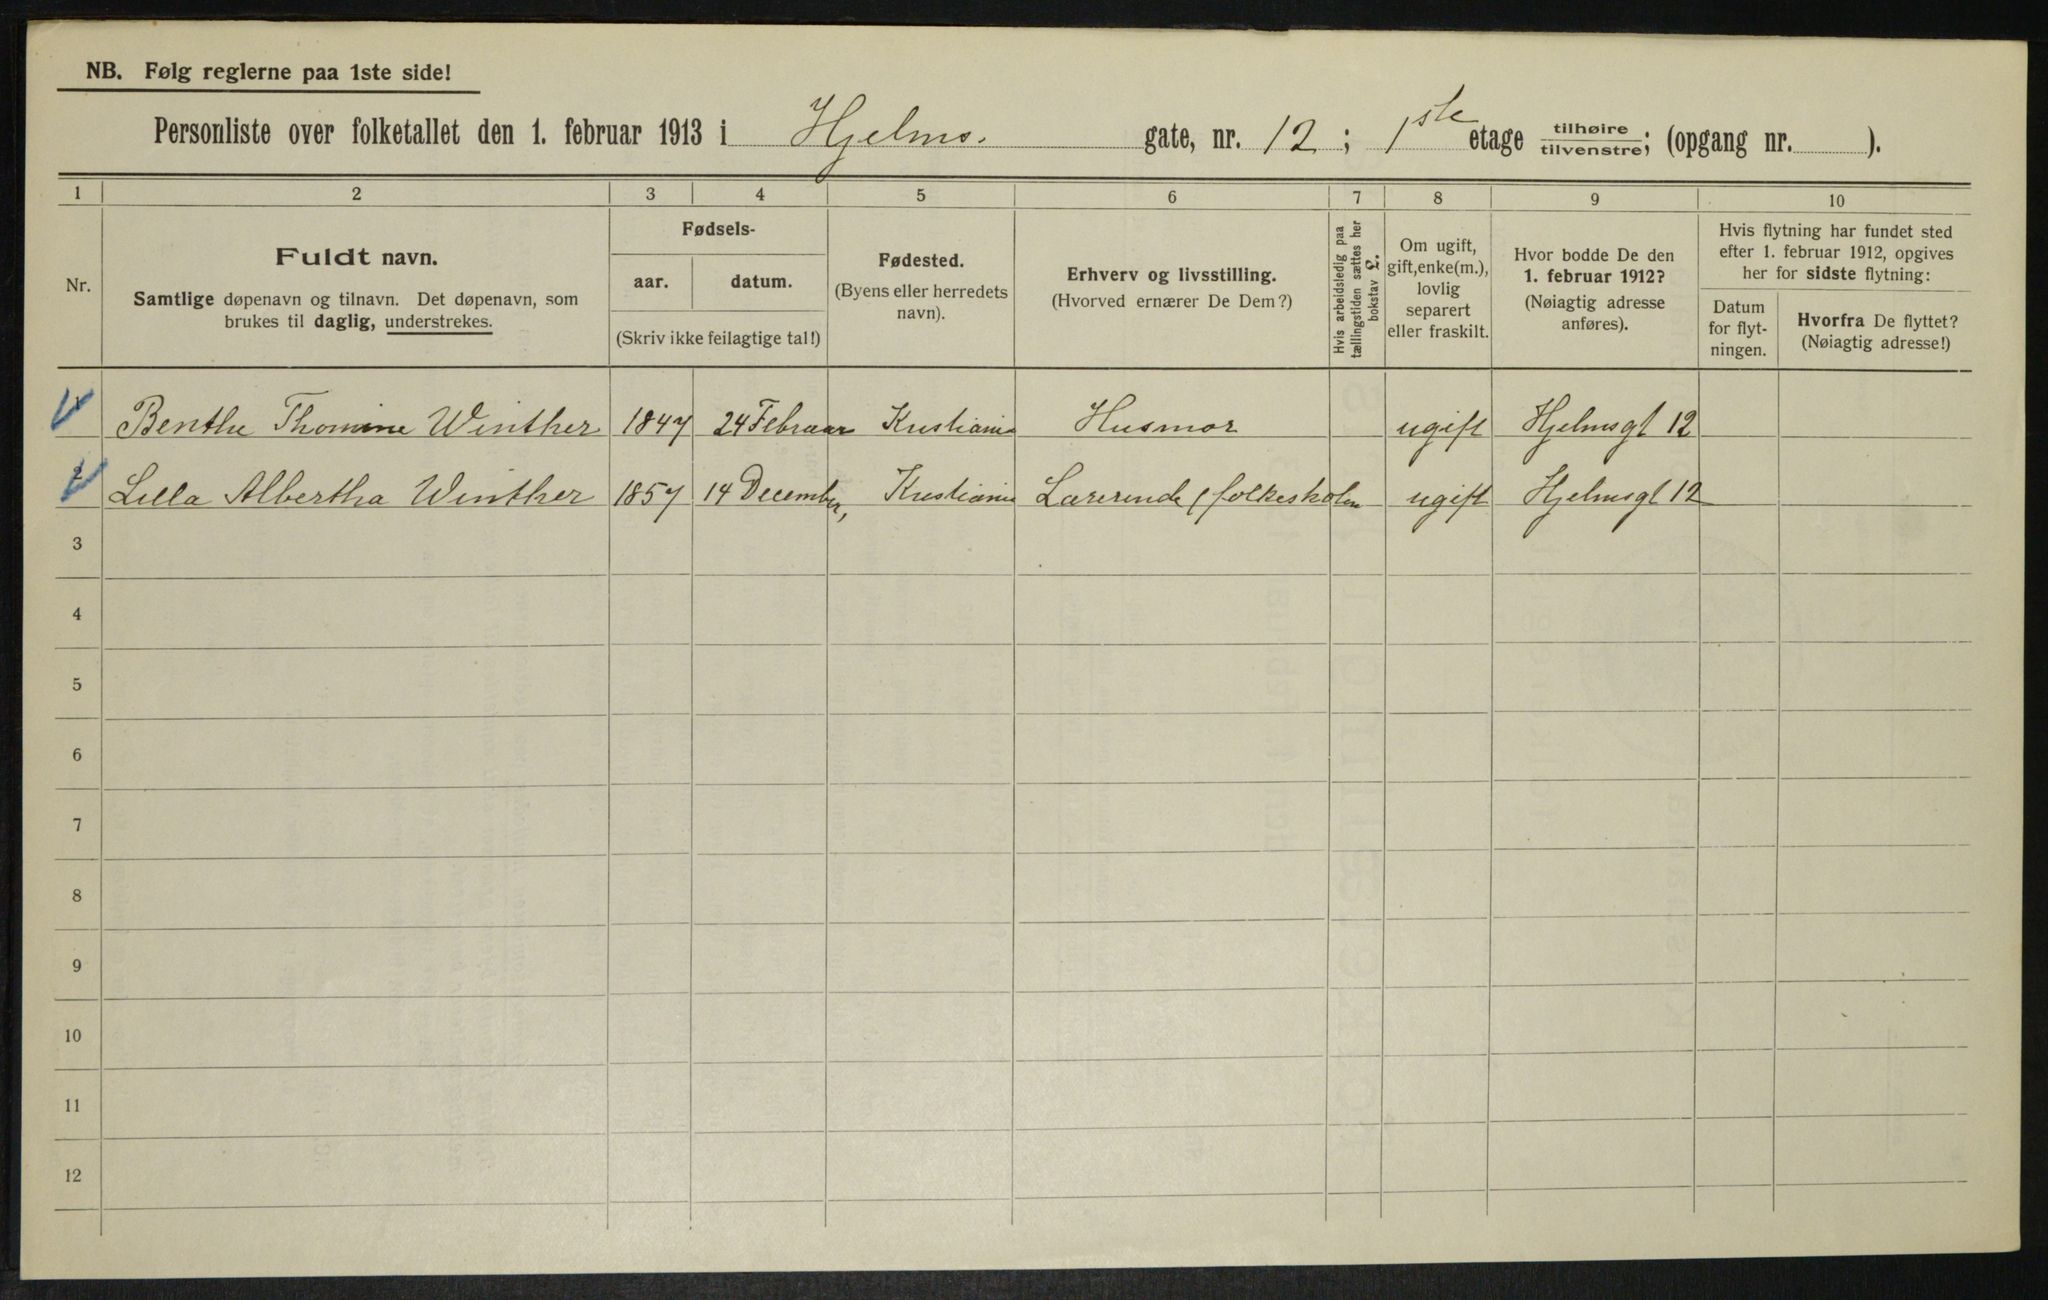 NB. Følg reglerne paa 1ste side!
Personliste over folketallet den 1. februar 1913 i Hjelms. gate, nr. 12 ; 1ste etage tilhøire tilvenstre; (opgang nr. ).
1 2 3 4 5 6 7 8 9 10
Nr.
Fuldt navn.
Samtlige døpenavn og tilnavn. Det døpenavn, som
brukes til daglig, understrekes.
Fødsels-
aar. datum.
(Skriv ikke feilagtige tal!)
Fødested.
(Byens eller herredets
navn).
Erhverv og livsstilling.
(Hvorved ernærer De Dem?)
Hvis arbeidsledig paa
tællingstiden sættes her
bokstav L.
Om ugift,
gift, enke(m.),
lovlig
separert
eller fraskilt.
Hvor bodde De den
1. februar 1912?
(Nøiagtig adresse
anføres).
Hvis flytning har fundet sted
efter 1. februar 1912, opgives
her for sidste flytning:
Datum
for flyt-
ningen.
Hvorfra De flyttet?
(Nøiagtig adresse!)
1 Benthe Thomine Winther 1847 24 Februar Kristiania Husmor ugift Hjelmsgt 12
2 Lilla Albertha Winther 1857 14 December, Kristiania Lærerinde folkeskolen ugift Hjelmsgt 12
3
4
5
6
7
8
9
10
11
12